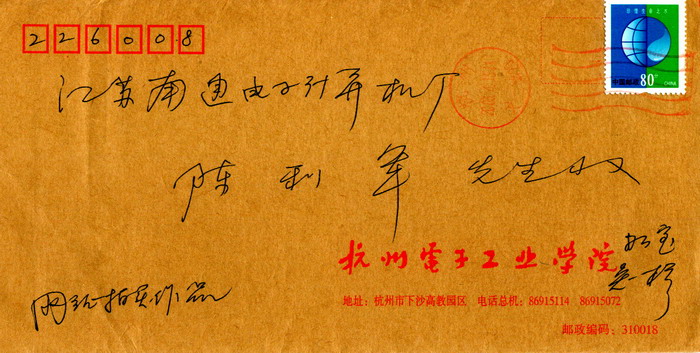 226008
江苏南通电子计算机厂
陈利军 先生收
杭州電子工业学院
地址：杭州市下沙高教园区 电话总机：86915114 86915072
邮政编码：310018
网上拍卖作品
中国邮政 80分
CHINA